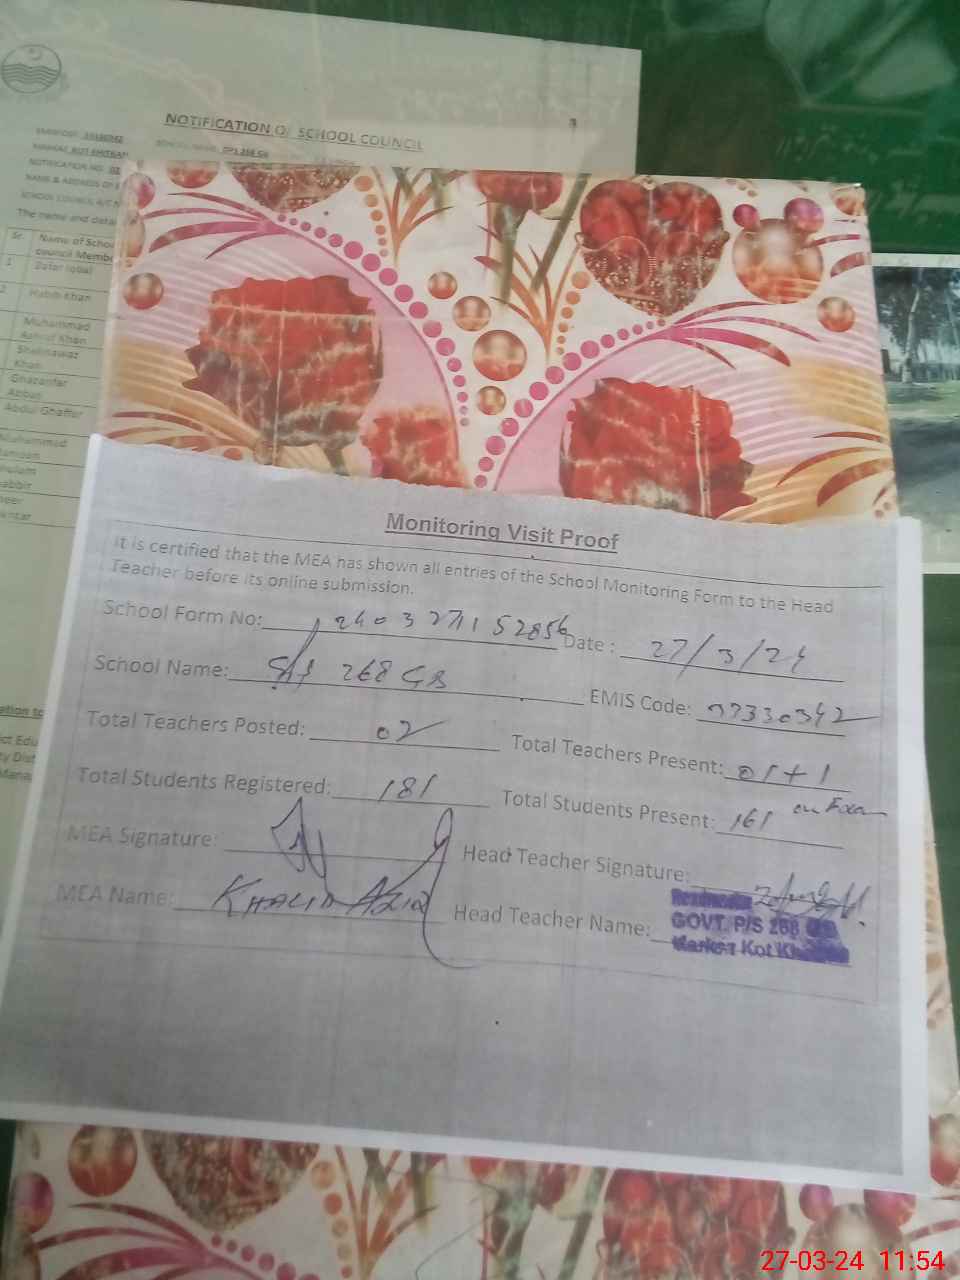 NOTIFICATION OF SCHOOL COUNCIL
SCHOOL NAME
NOTIFICATION NO.
NAME & ADDRESS OF
SCHOOL COUNCIL A/C
The name and detai
Sr. Name of Schoo
council Membe
1 Zafar Iqbal
2 Habib Khan
Muhammad
Ashraf Khan
Shahnawaz
Khan
Ghazanfar
Abbas
Abdul Ghaffar
Muhammad
Monitoring Visit Proof
It is certified that the MEA has shown all entries of the School Monitoring Form to the Head
Teacher before its online submission.
School Form No: Date : 27/3/24
School Name: 268 GB EMIS Code: 37330342
Total Teachers Posted: 02 Total Teachers Present: 01+1
on
Total Students Registered: 181 Total Students Present: 161
MEA Signature: Head Teacher Signature:
MEA Name: KHALID AZIZ Head Teacher Name:
GOVT. P/S 268
Markaz Kot
27-03-24 11:54